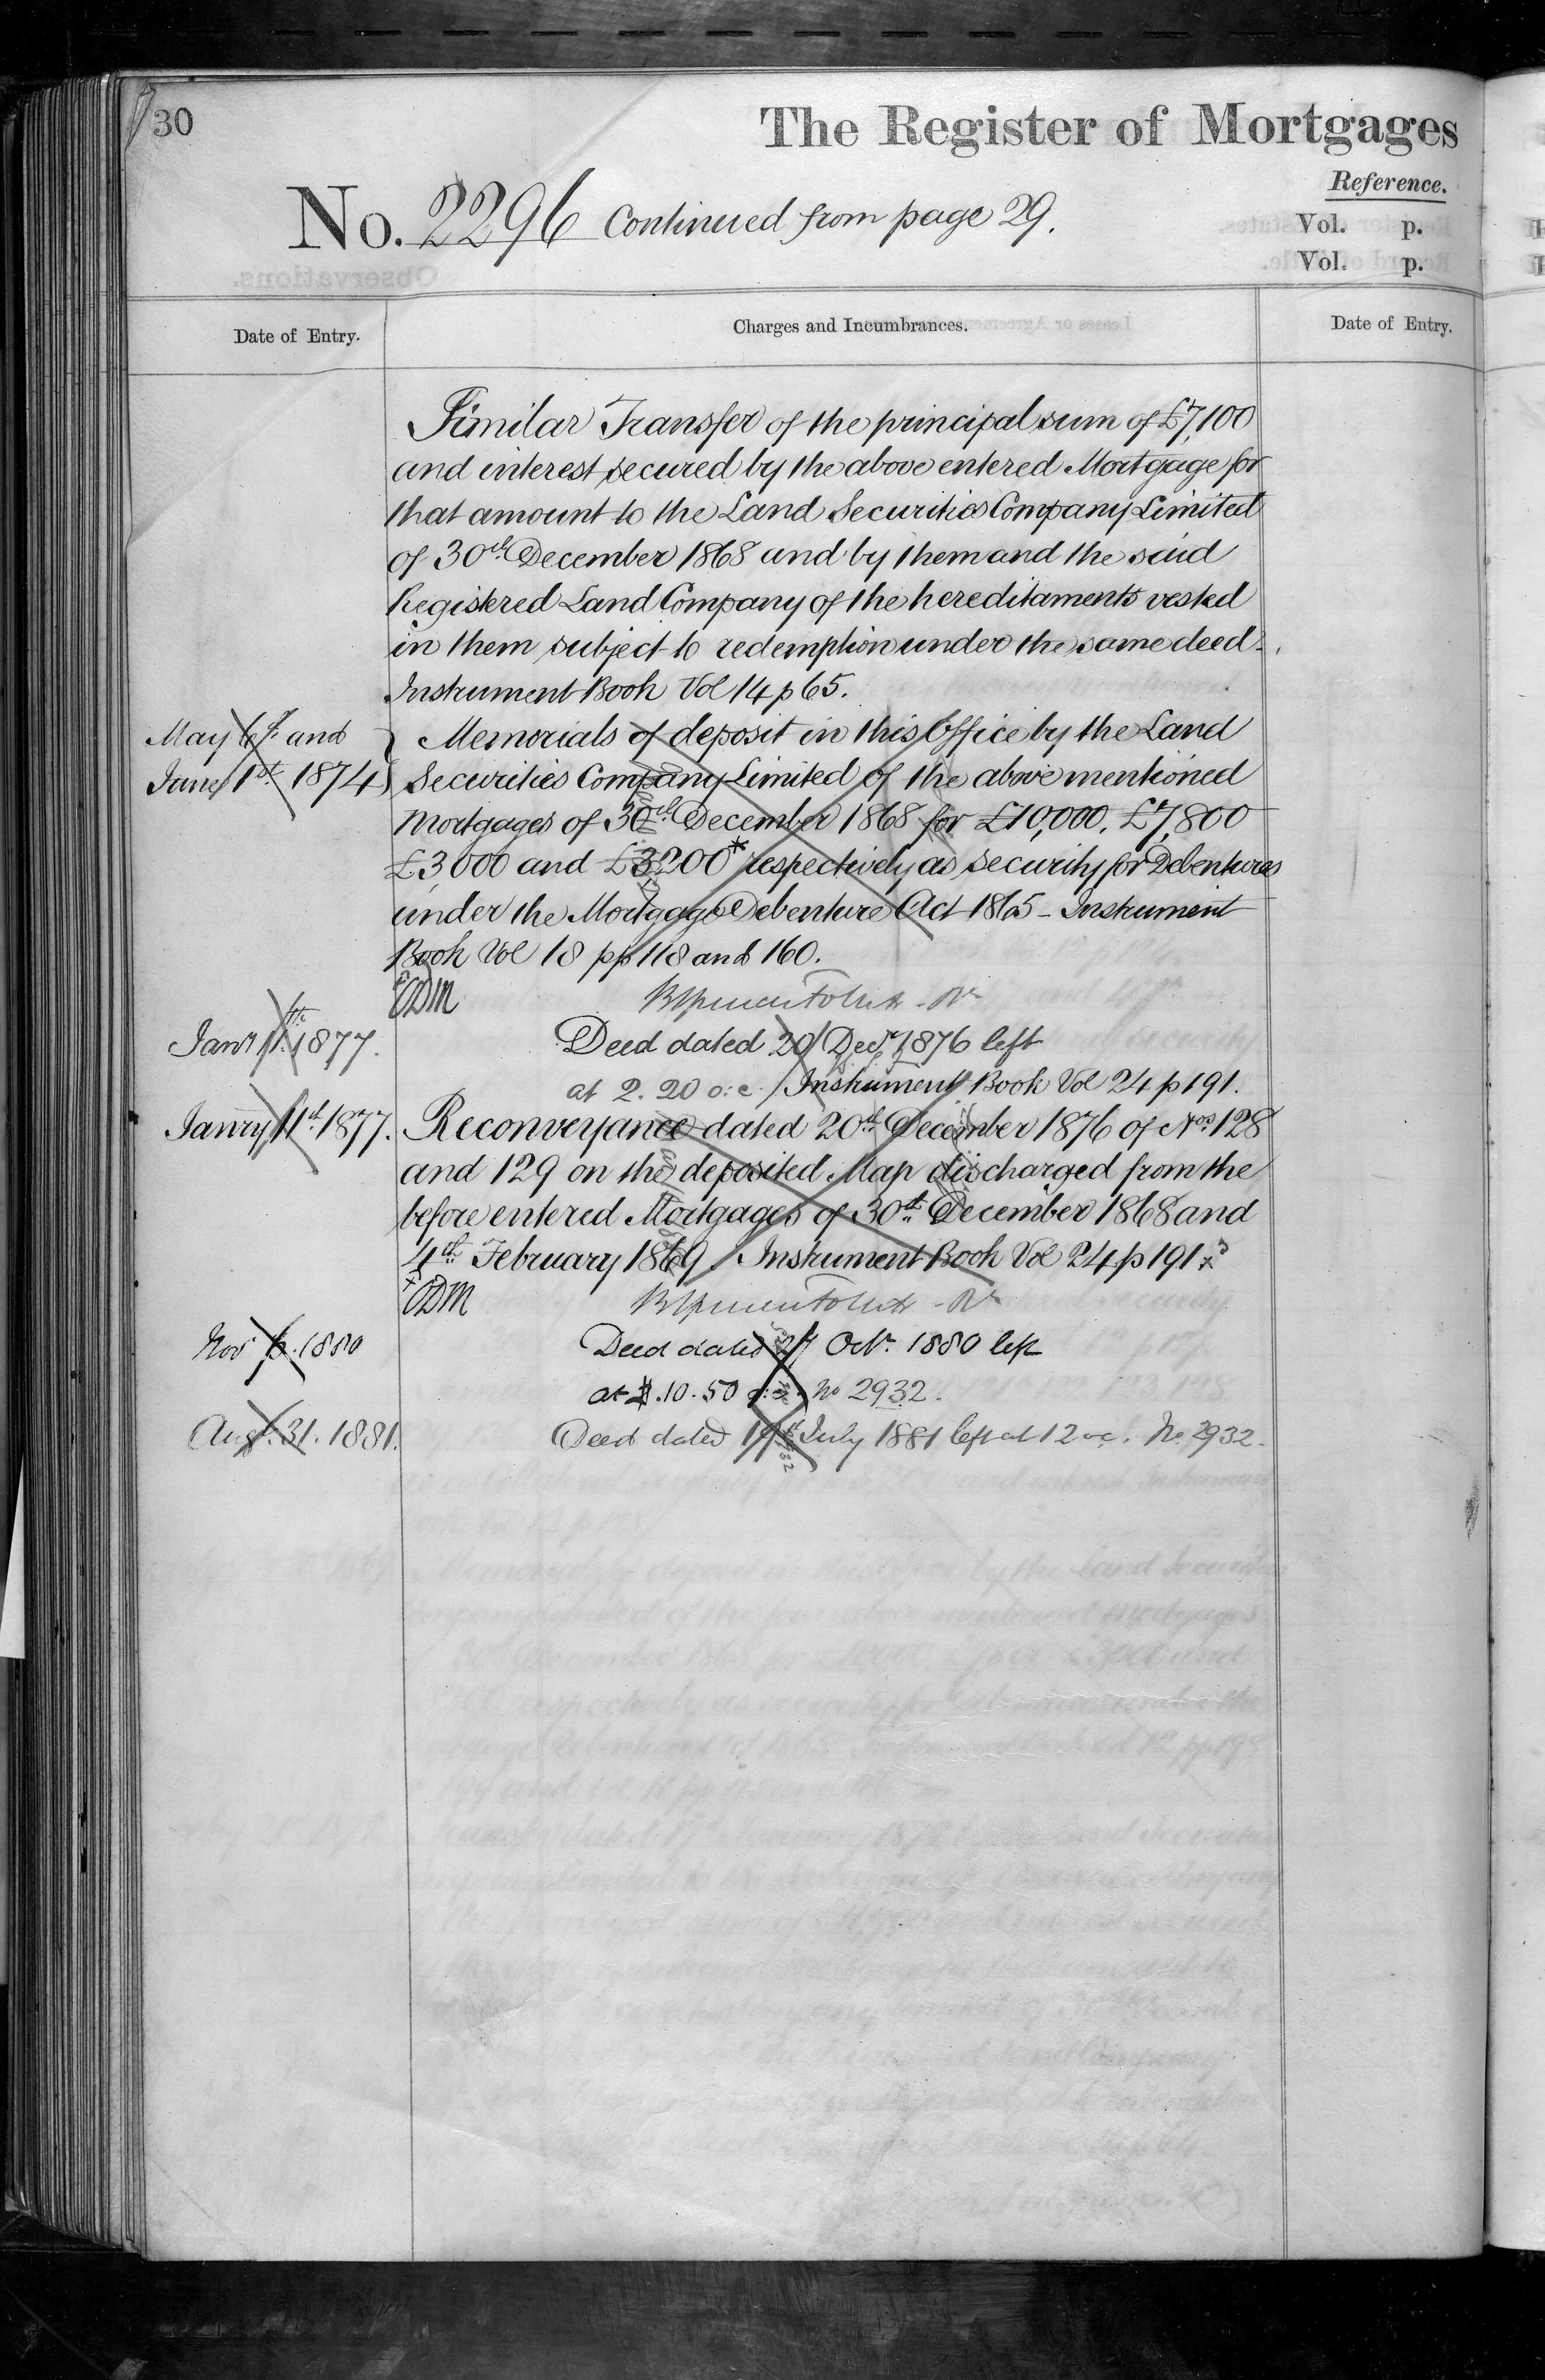 30
The Register of Mortgages
Reference.
No. 2296 Continued from page 29.
Vol. p.
Vol. p.
Date of Entry.
Charges and Incumbrances.
Date of Entry.
Similar Transfer of the principal sum of £7,100
and interest secured by the above entered Mortgage for
that amount to the Land Securities Company Limited
of 30th December 1868 and by them and the said
Registered Land Company of the hereditaments vested
in them subject to redemption under the same deed.
Instrument Book Vol 14 p 65.
May 6th and
June 1st 1874
Memorials of deposit in this Office by the Land
Securities Company Limited of the above mentioned
Mortgages of 30th December 1868 for £10,000. £7,800
£3,000 and £3200* respectively as security for Debentures
under the Mortgage Debenture Act 1865 - Instrument
Book Vol 18 pp 118 and 160.
Janr 11th 1877.
Deed dated 20 Decr 1876 left
at 2.20 o:c. Instrument Book Vol 24 p 191.
Janry 11th 1877.
Reconveyance dated 20th December 1876 of Nos 128
and 129 on the deposited Map discharged from the
before entered Mortgages of 30th December 1868 and
4th February 1869. Instrument Book Vol 24 p 191
Nov 1880
Deed dated 27 Octr. 1880 left
at 10.50 No 2932.
Augt. 31. 1881.
Deed dated July 1881 left at 12 o.c. No. 2932.